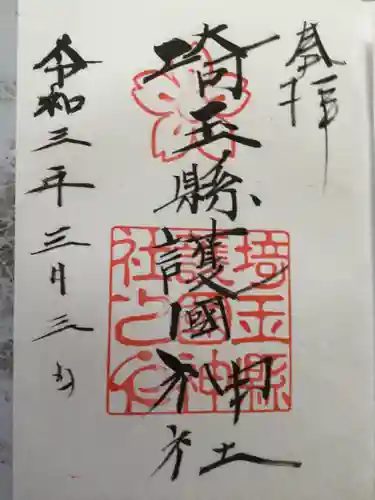 奉拝
埼玉縣護國神社
令和三年三月三日
埼玉縣
護國神
社之印